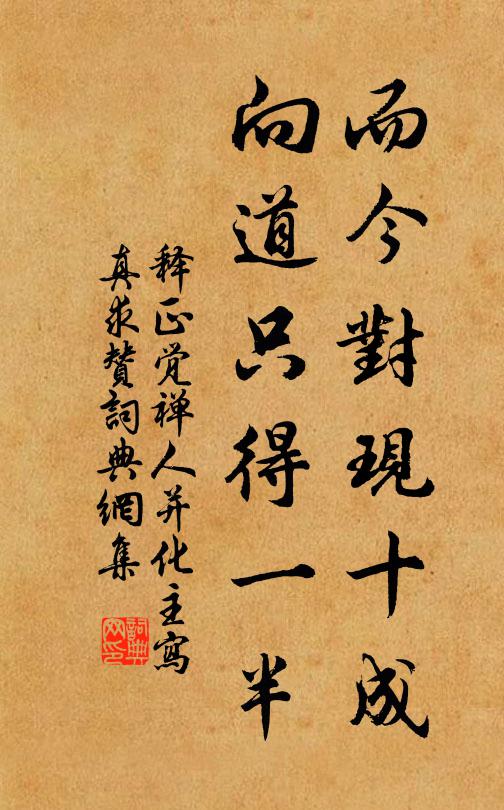 而今對現十成
向道只得一半
释正觉禅人并化主寫
真求贊詞典網集
詞典網印